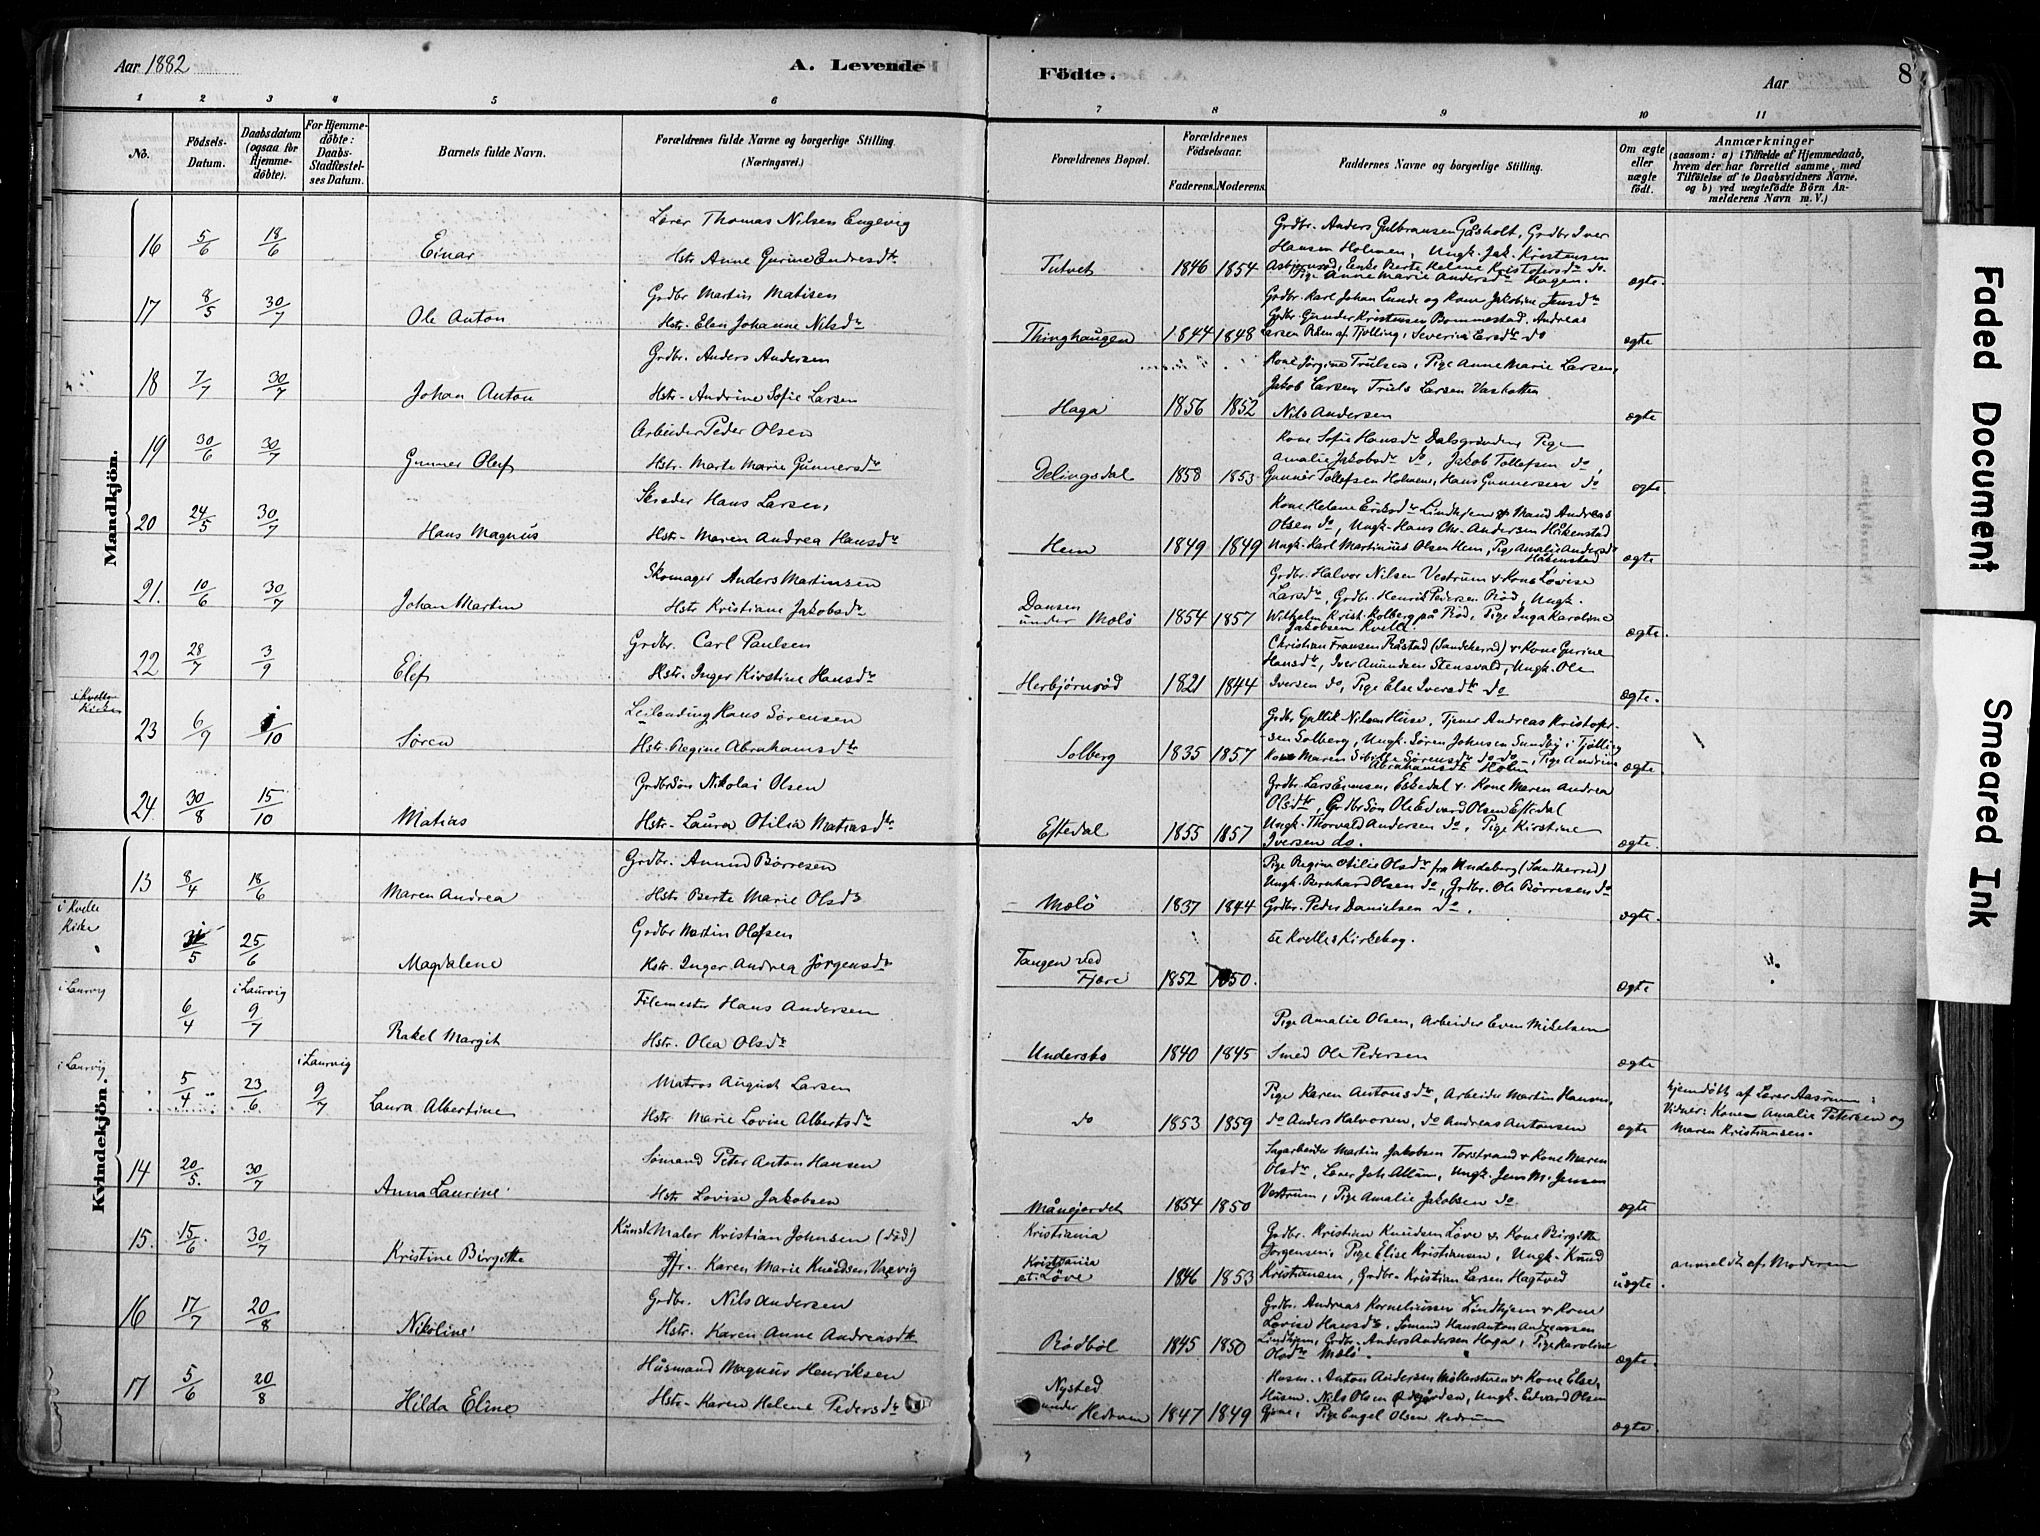 Aar 1882
A. Levende
Födte.
Aar
8
1 2 3 4 5 6 7 8 9 10 11
No.
Födsels-Datum.
Daabsdatum (ogsaa for Hjemmedöbte).
For Hjemmedöbte: Daabs-Stadfæstelses Datum.
Barnets fulde Navn.
Forældrenes fulde Navne og borgerlige Stilling. (Næringsvei.)
Forældrenes Bopæl.
Forældrenes Födselsaar.
Faderens. Moderens.
Faddernes Navne og borgerlige Stilling.
Om ægte eller uægte födt.
Anmærkninger
(saasom: a) i Tilfælde af Hjemmedaab, hvem der har forrettet samme, med Tilföielse af to Daabsvidners Navne, og b) ved uægtefödte Börn Anmelderens Navn m. V.)
Mandkjön.
16 5/6 18/6 Einar
Lærer Thomas Nilsen Engevig
Hstr Anne Gurine Endresdtr
Tutvet 1846 1854
Grdbr. Anders Gulbransen Gåsholt, Grdbr Iver
Hansen Holmen, Ungk. Jak. Kristensen
Asbjørnrød, Enke Berte Helene Kristofersdtr do.
Pige Anne Marie Andersdtr Hagen.
ægte.
17 8/5 30/7 Ole Anton
Grdbr Martin Matisen
Hstr. Elen Johanne Nilsdtr
Thinghaugen 1844 1848
Grdbr. Karl Johan Lunde og Kone Jakobine Jensdtr
Grdbr Gunder Kristensen Bommestad, Andreas
Larsen af Tjølling, Severine do
ægte
18 7/7 30/7 Johan Anton
Grdbr. Anders Andersen
Hstr. Andrine Sofie Larsen
Haga 1856 1852
Kone Jørgine Trulsen, Pige Anne Marie Larsen,
Jakob Larsen, Truls Larsen Vasbotten
Nils Andersen
ægte
19 30/6 30/7 Gunner Olef
Arbeider Peder Olsen
Hstr. Marte Marie Gunnersdtr
Delingsdal 1858 1853
Kone Sofie Hansdtr Dalsgrinden, Pige
Amalie Jakobsdtr do, Jakob Tollefsen do,
Gunner Tollefsen Holmen, Hans Gunnersen do
ægte.
20 24/5 30/7 Hans Magnus
Skræder Hans Larsen,
Hstr. Maren Andrea Hansdtr
Hem 1849 1849
Kone Helene Eriksdtr Lindhjem & Mand Andreas
Olsen do, Ungk. Hans Chr. Andersen Håkenstad
Ungk. Karl Martinius Olsen Hem, Pige Amalie Andersdtr
Håkenstad
ægte
21. 10/6 30/7 Johan Martin
Skomager Anders Martinsen
Hstr Kristiane Jakobsdtr
Dansen under Mælø 1854 1857
Grdbr. Halvor Nilsen Vestrum & Kone Lovise
Larsdtr, Grdbr. Henrik Pedersen Rød, Ungk.
Wilhelm Krist. Kolberg på Rød, Pige Inga Karoline
Jakobsen Kvelle.
ægte.
22 28/7 3/9 Elef
Grdbr. Carl Paulsen
Hstr. Inger Kirstine Hansdtr
Herbjørnrød 1821 1844
Christian Fransen Råstad (Sandeherred) & Kone Gurine
Hansdtr, Iver Amundsen Stensvald, Ungk. Ole
Iversen do, Pige Else Iversdtr do
ægte.
i Kvelle Kirke
23 6/9 1/10 Søren
Leilending Hans Sørensen
Hstr. Regine Abrahamsdtr
Solberg 1835 1857
Grdbr Gullik Nilsen Huse, Tjener Andreas Kristofer-
sen Solberg, Ungk. Søren Johnsen Sundby i Tjølling
Kone Maren Sørensdtr do do, Pige Andrine
Abrahamsdtr Holm
ægte.
24. 30/8 15/10 Matias
Grdbrsøn Nikolai Olsen
Hstr. Laura Otilia Matiasdtr
Eftedal 1855 1857
Grdbr. Lars Evensen Eftedal & Kone Maren Andrea
Olsdtr, Grdbrsøn Ole Edvard Olsen Eftedal
Ungk. Thorvald Andersen do, Pige Kirstine
Iversen do.
ægte.
Kvindekjön.
13 8/4 18/6 Maren Andrea
Grdbr. Amund Børresen
Hstr Berte Marie Olsdtr
Mælø 1837 1844
Pige Regine Otilie Olsdtr fra Undeberg (Sandherred)
Ungk. Bernhard Olsen do, Grdbr. Ole Børresen do
Grdbr. Peder Danielsen do.
ægte.
i Kvelle Kirke
/5 25/6 Magdalene
Grdbr Martin Olafsen
Hstr. Inger Andrea Jørgensdtr
Tangen ved Fjære 1852 1850.
se Kvelles Kirkebog.
ægte
i Laurvig
6/4 i Laurvig 9/7 Rakel Margit
Filemester Hans Andersen
Hstr. Olea Olsdtr
Undersbo 1840 1845
Pige Amalie Olsen, Arbeider Even Mikelsen
Smed Ole Pedersen
ægte
i Laurvig
5/4 23/6 i Laurvig 9/7 Laura Albertine
Matros August Larsen
Hstr. Marie Lovise Albertsdtr
do 1853 1859
Pige Karen Antonsdtr, Arbeider Martin Hansen,
do Anders Halvorsen, do Andreas Antonsen
ægte
hjemdøbt af Lærer Aasrum:
Vidner: Konen Amalie Petersen og
Maren Kristiansen.
14 20/5. 30/7 Anna Laurine
Sømand Peter Anton Hansen
Hstr Lovise Jakobsen
Månejordet 1854 1850
Sagarbeider Martin Jakobsen Torstrand & Kone Maren
Olsdtr, Lærer Joh. Allum, Ungk. Jens M. Jensen
Vestrum, Pige Amalie Jakobsen do
ægte
15. 15/6 30/7 Kristine Birgitte
Kunst Maler Kristian Johnsen (død)
Jfr. Karen Marie Knudsen Varvig
Kristiania
Kristiania
pt. Løve 1846 1853
Grdbr. Kristian Knudsen Løve & Kone Birgitte
Jørgensen, Pige Elise Kristiansen, Ungk. Knud
Kristiansen, Grdbr. Kristian Larsen Hagtved
uægte.
anmeldt af Moderen
16 17/7 20/8 Nikoline
Grdbr. Nils Andersen
Hstr. Karen Anne Andreasdtr
Rødbøl 1845 1850
Grdbr. Andreas Korneliussen Lindhjem & Kone
Lovise Hansdtr, Sømand Hans Anton Andreassen
Lindhjem, Grdbr. Anders Andersen Haga, Pige Karoline
Olsdtr Mælø
ægte.
17 5/6 20/8 Hilda Eline
Husmand Magnus Henriksen
Hstr. Karen Helene Pedersdtr
Nysted under Hedrum 1847 1849
Husm. Anton Andersen Møllerstuen & Kone Else,
Husm. Nils Olsen, Ungk. Edvard Olsen
Gjone, Pige Engel Olsen Hedrum
ægte.
Faded Document
Smeared Ink